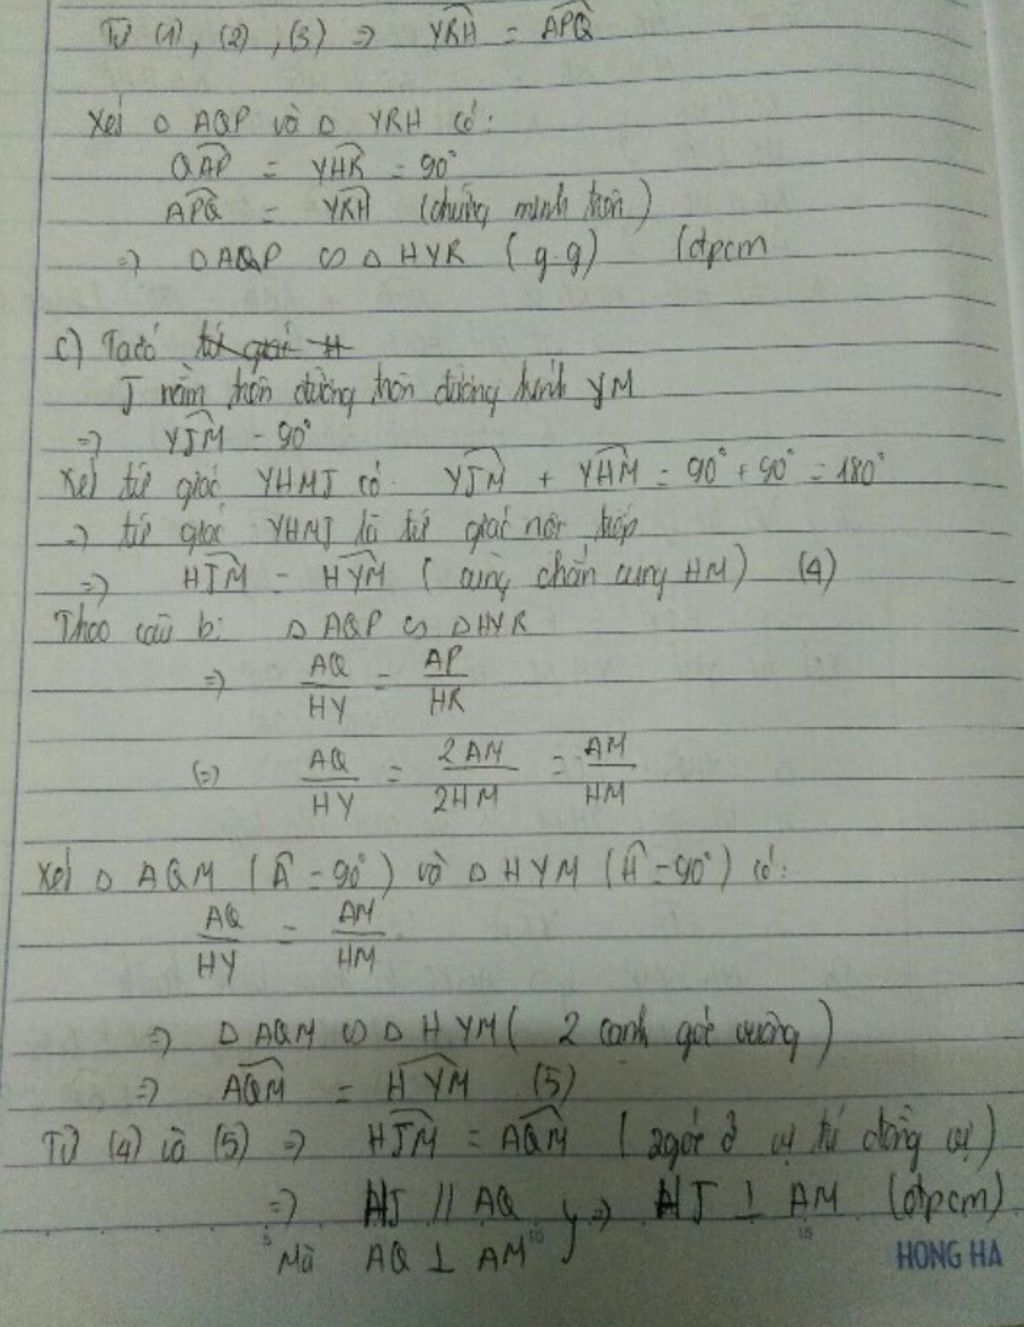 Từ (1), (2), (3) => YRH = APQ
Xét Δ AQP và Δ YRH có:
QAP = YHR = 90°
APQ = YRH (chứng minh trên)
=> Δ AQP ∽ Δ HYR (g.g) (đpcm
c) Ta có tứ giác H
J nằm trên đường tròn đường kính YM
=> YJM = 90°
Xét tứ giác YHMJ có YJM + YHM = 90° + 90° = 180°
=> tứ giác YHMJ là tứ giác nội tiếp
=> HJM = HYM (cùng chắn cung HM) (4)
Theo câu b: Δ AQP ∽ Δ HYR
=> AQ/HY = AP/HR
(=) AQ/HY = 2AM/2HM = AM/HM
Xét Δ AQM (Â = 90°) và Δ HYM (Ĥ = 90°) có:
AQ/HY = AM/HM
=> Δ AQM ∽ Δ HYM ( 2 cạnh góc vuông )
=> AQM = HYM (5)
Từ (4) và (5) => HJM = AQM (2 góc ở vị trí đồng vị)
=> HJ // AQ } => HJ ⊥ AM (đpcm)
Mà AQ ⊥ AM
HONG HA